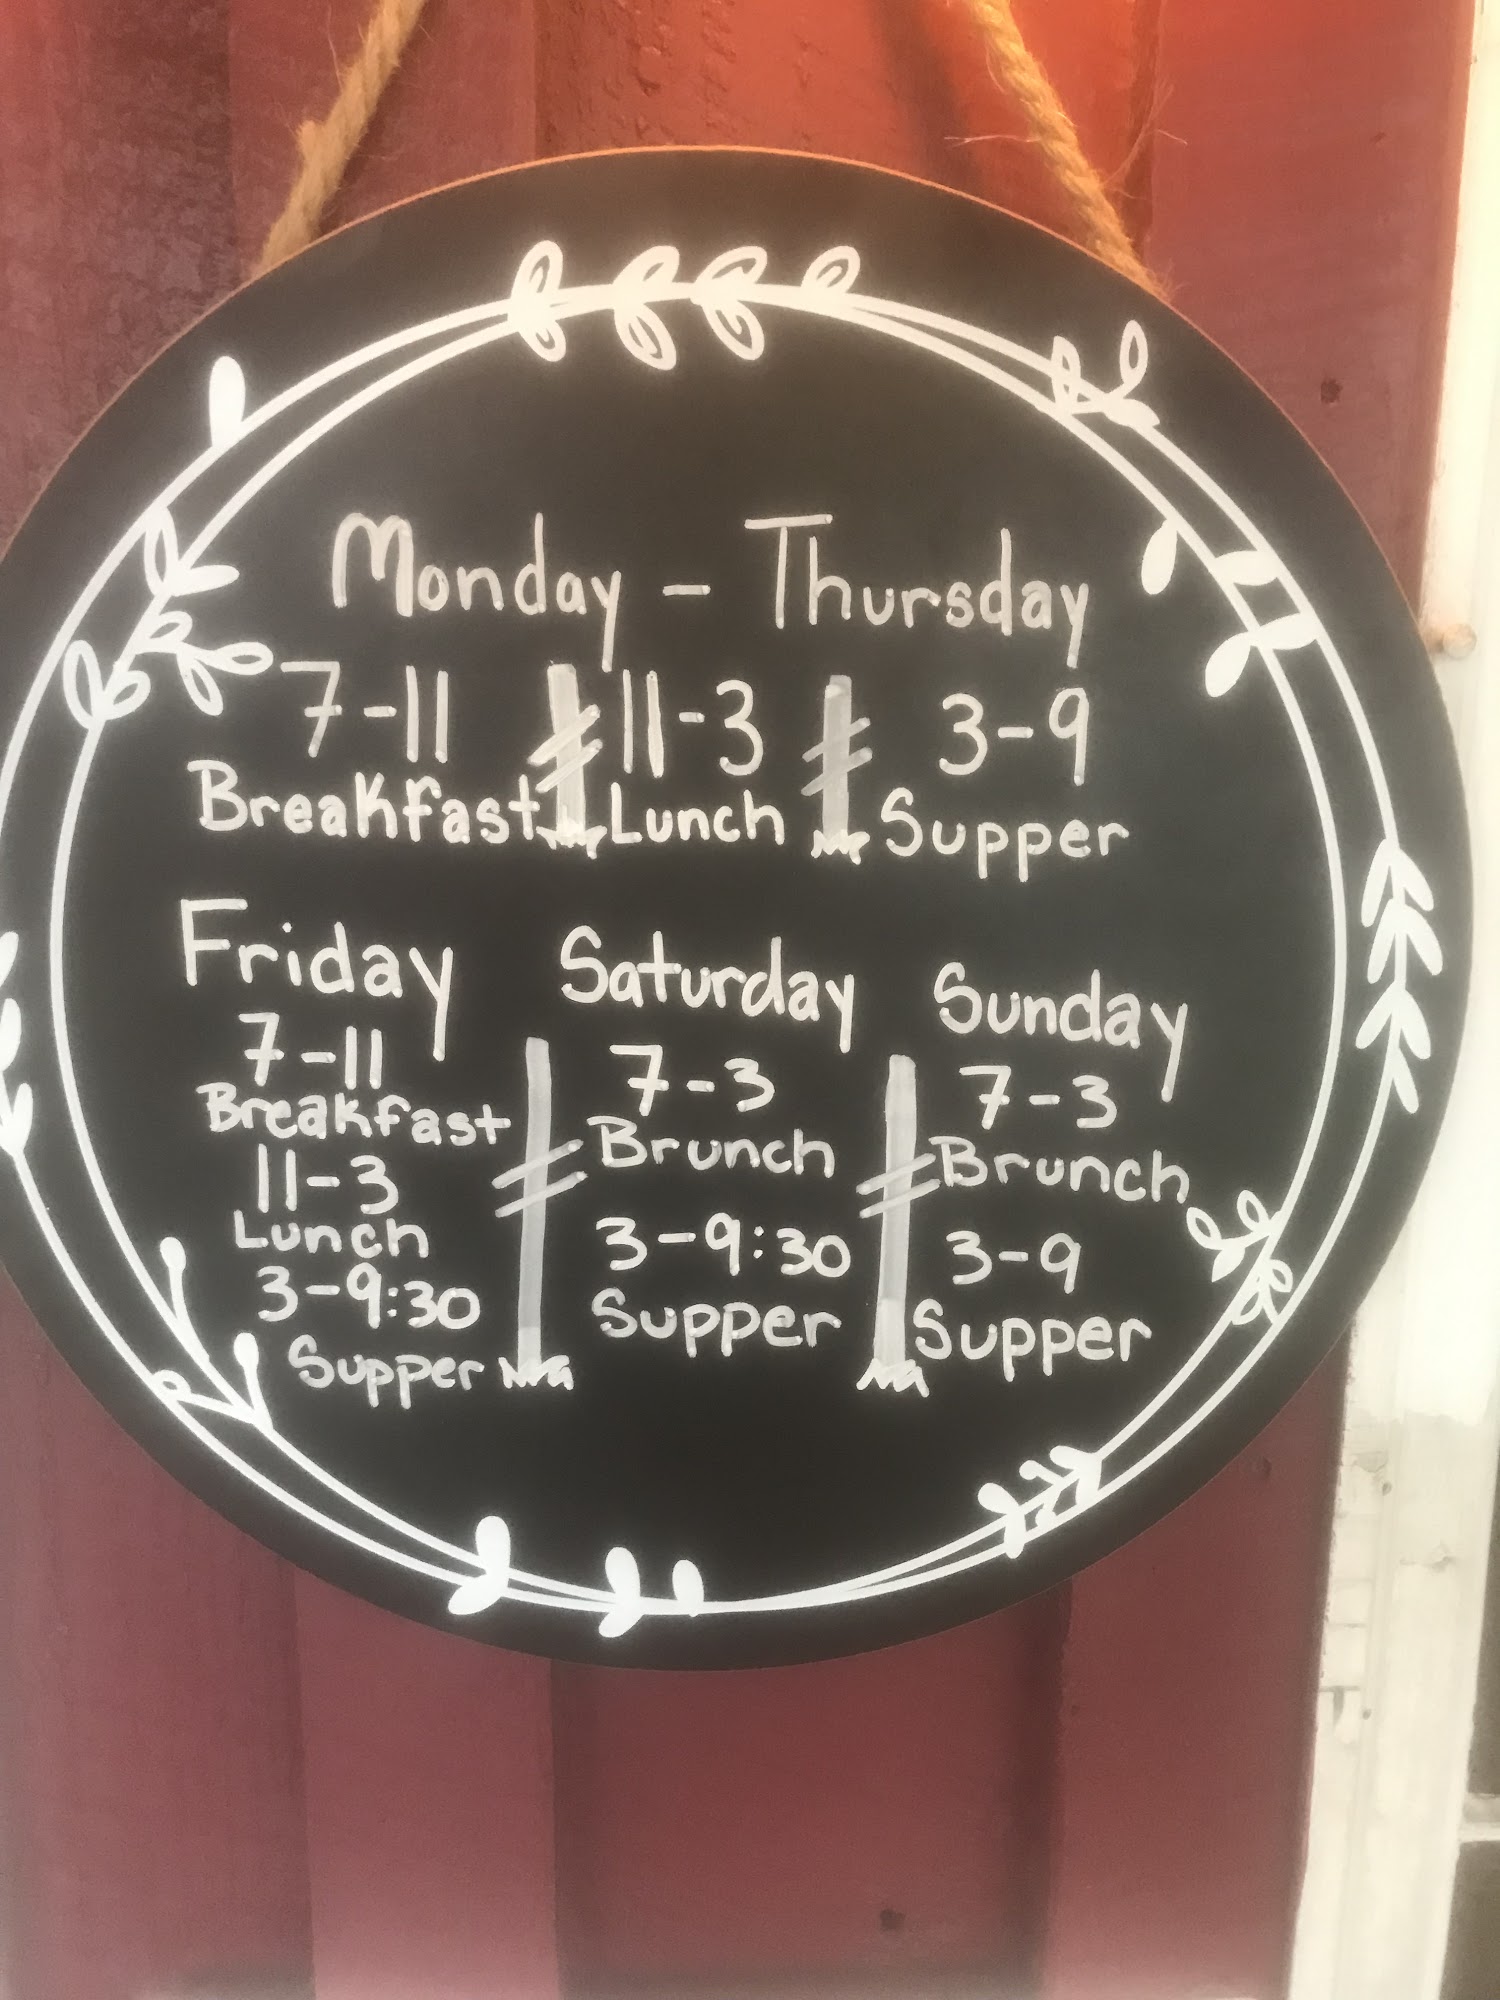 Monday - Thursday
7-11 11-3 3-9
Breakfast Lunch Supper
Friday Saturday Sunday
7-11
Breakfast
11-3
Lunch
3-9:30
Supper
7-3
Brunch
3-9:30
Supper
7-3
Brunch
3-9
Supper